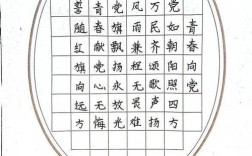 青春向党
党如朝阳照四方
万民齐颂歌声扬
风雨兼程无畏难
党旗飘扬永放光
青春献党心无悔
誓随红旗向远方